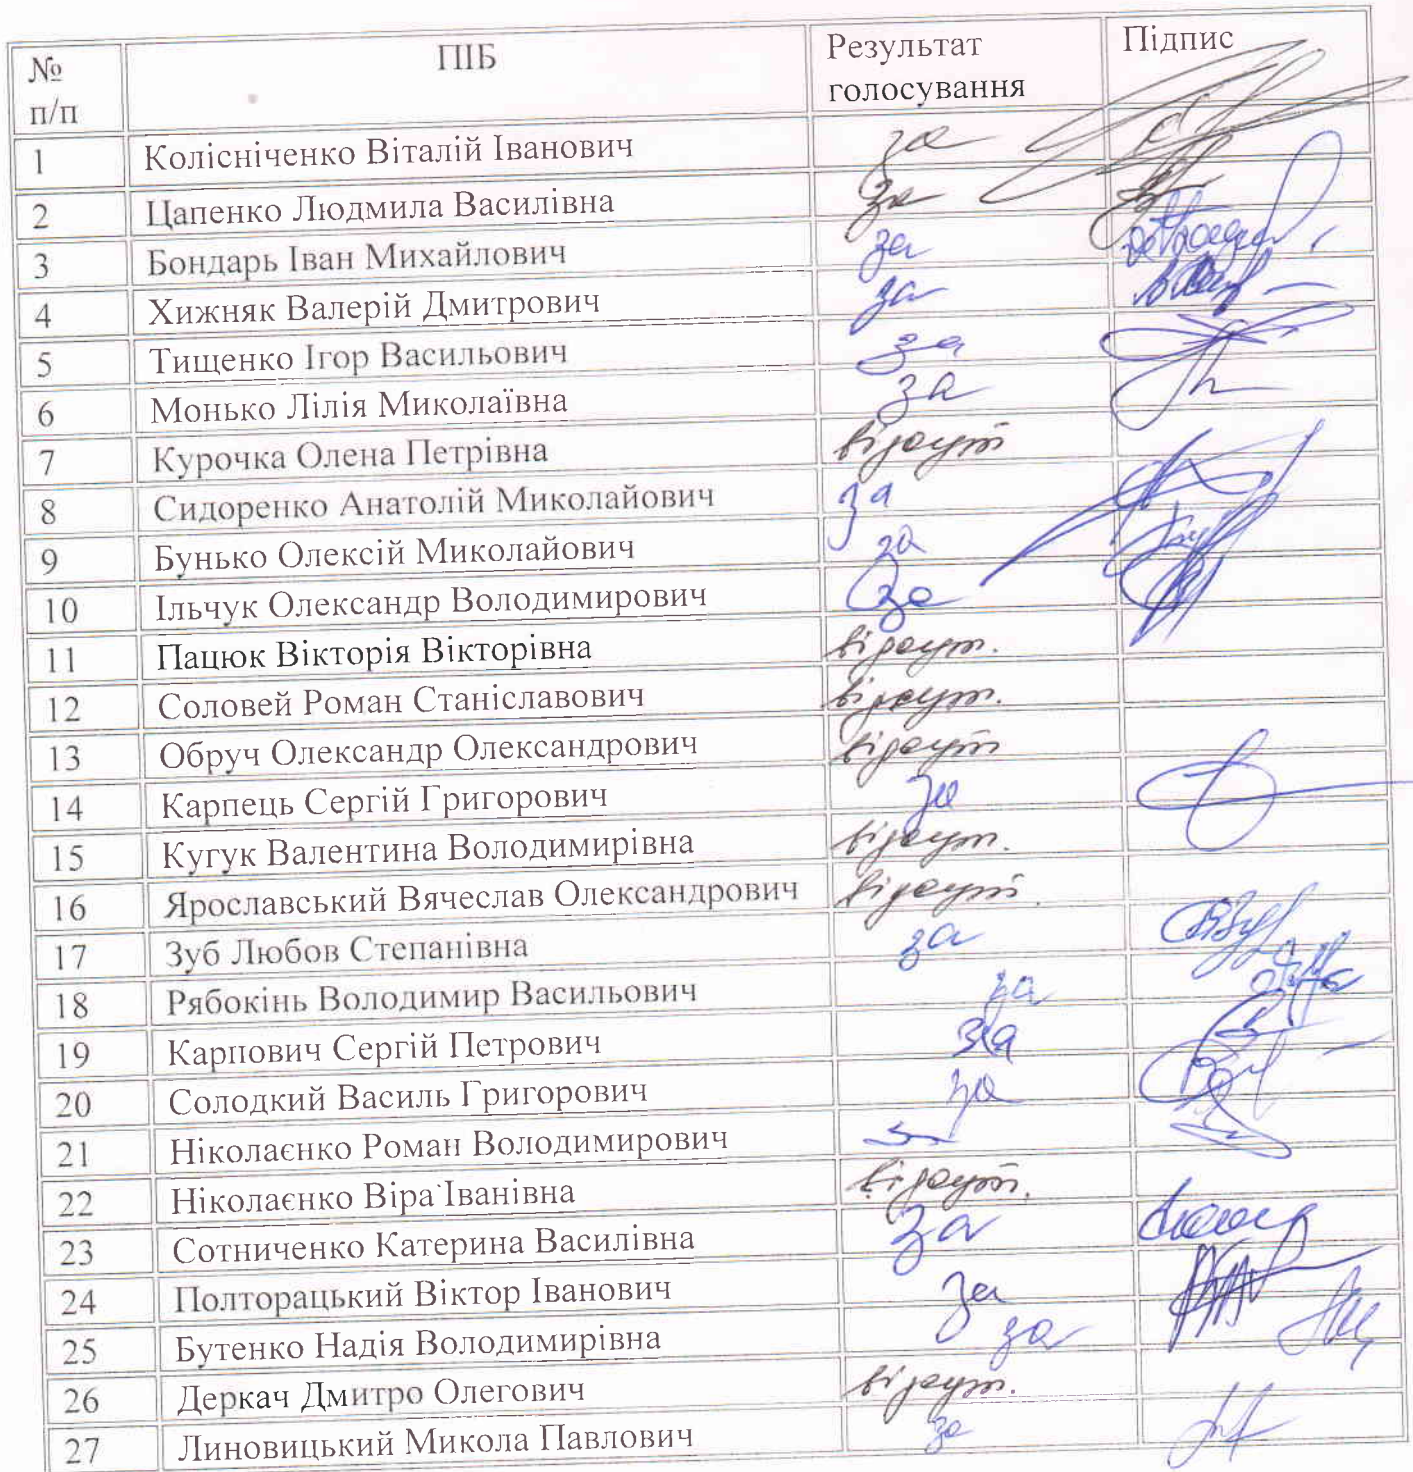 № п/п ПІБ Результат голосування Підпис
1 Колісніченко Віталій Іванович за
2 Цапенко Людмила Василівна за
3 Бондарь Іван Михайлович за
4 Хижняк Валерій Дмитрович за
5 Тищенко Ігор Васильович за
6 Монько Лілія Миколаївна за
7 Курочка Олена Петрівна відсут
8 Сидоренко Анатолій Миколайович за
9 Бунько Олексій Миколайович за
10 Ільчук Олександр Володимирович за
11 Пацюк Вікторія Вікторівна відсут.
12 Соловей Роман Станіславович відсут.
13 Обруч Олександр Олександрович відсут
14 Карпець Сергій Григорович за
15 Кугук Валентина Володимирівна відсут.
16 Ярославський Вячеслав Олександрович відсут.
17 Зуб Любов Степанівна за
18 Рябокінь Володимир Васильович за
19 Карпович Сергій Петрович за
20 Солодкий Василь Григорович за
21 Ніколаєнко Роман Володимирович
22 Ніколаєнко Віра Іванівна відсут.
23 Сотниченко Катерина Василівна за
24 Полторацький Віктор Іванович за
25 Бутенко Надія Володимирівна за
26 Деркач Дмитро Олегович відсут.
27 Линовицький Микола Павлович за